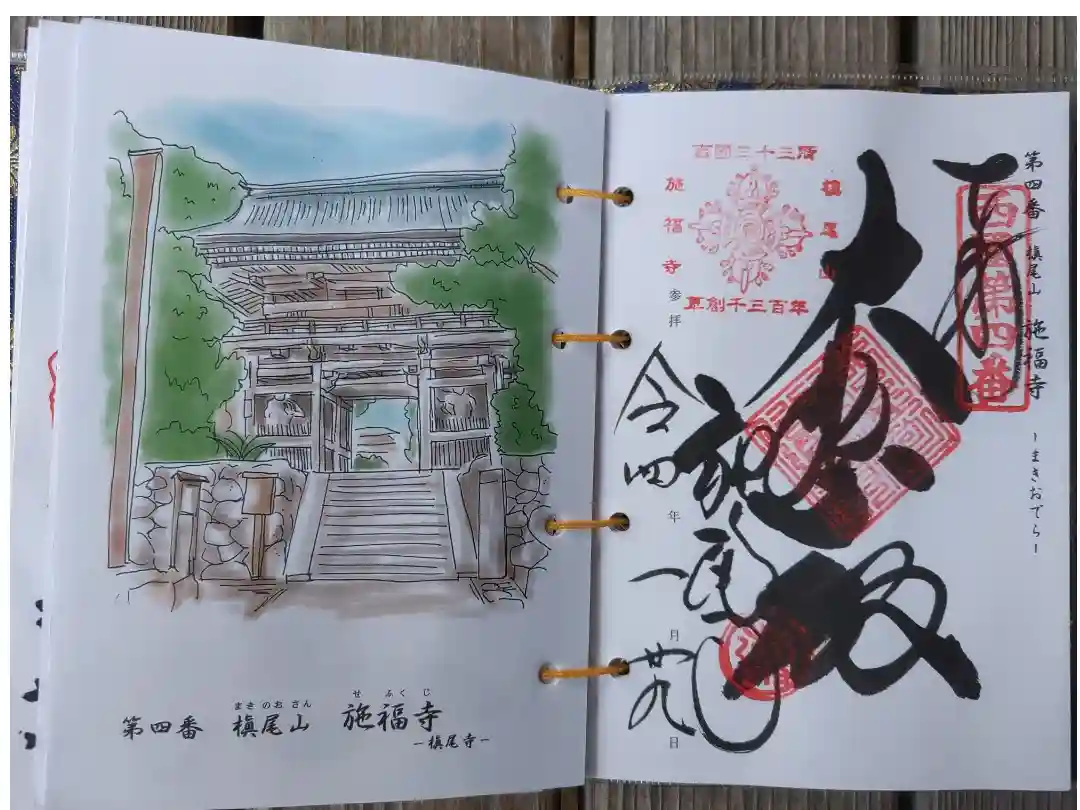 まきのおさん せふくじ
第四番 槇尾山 施福寺
－槇尾寺－
第四番 槇尾山 施福寺 －まきおでら－
奉
西國第四番
大悲殿
西国三十三所
槇尾山
施福寺
草創千三百年
施福寺
参拝 令四年一月廿九日